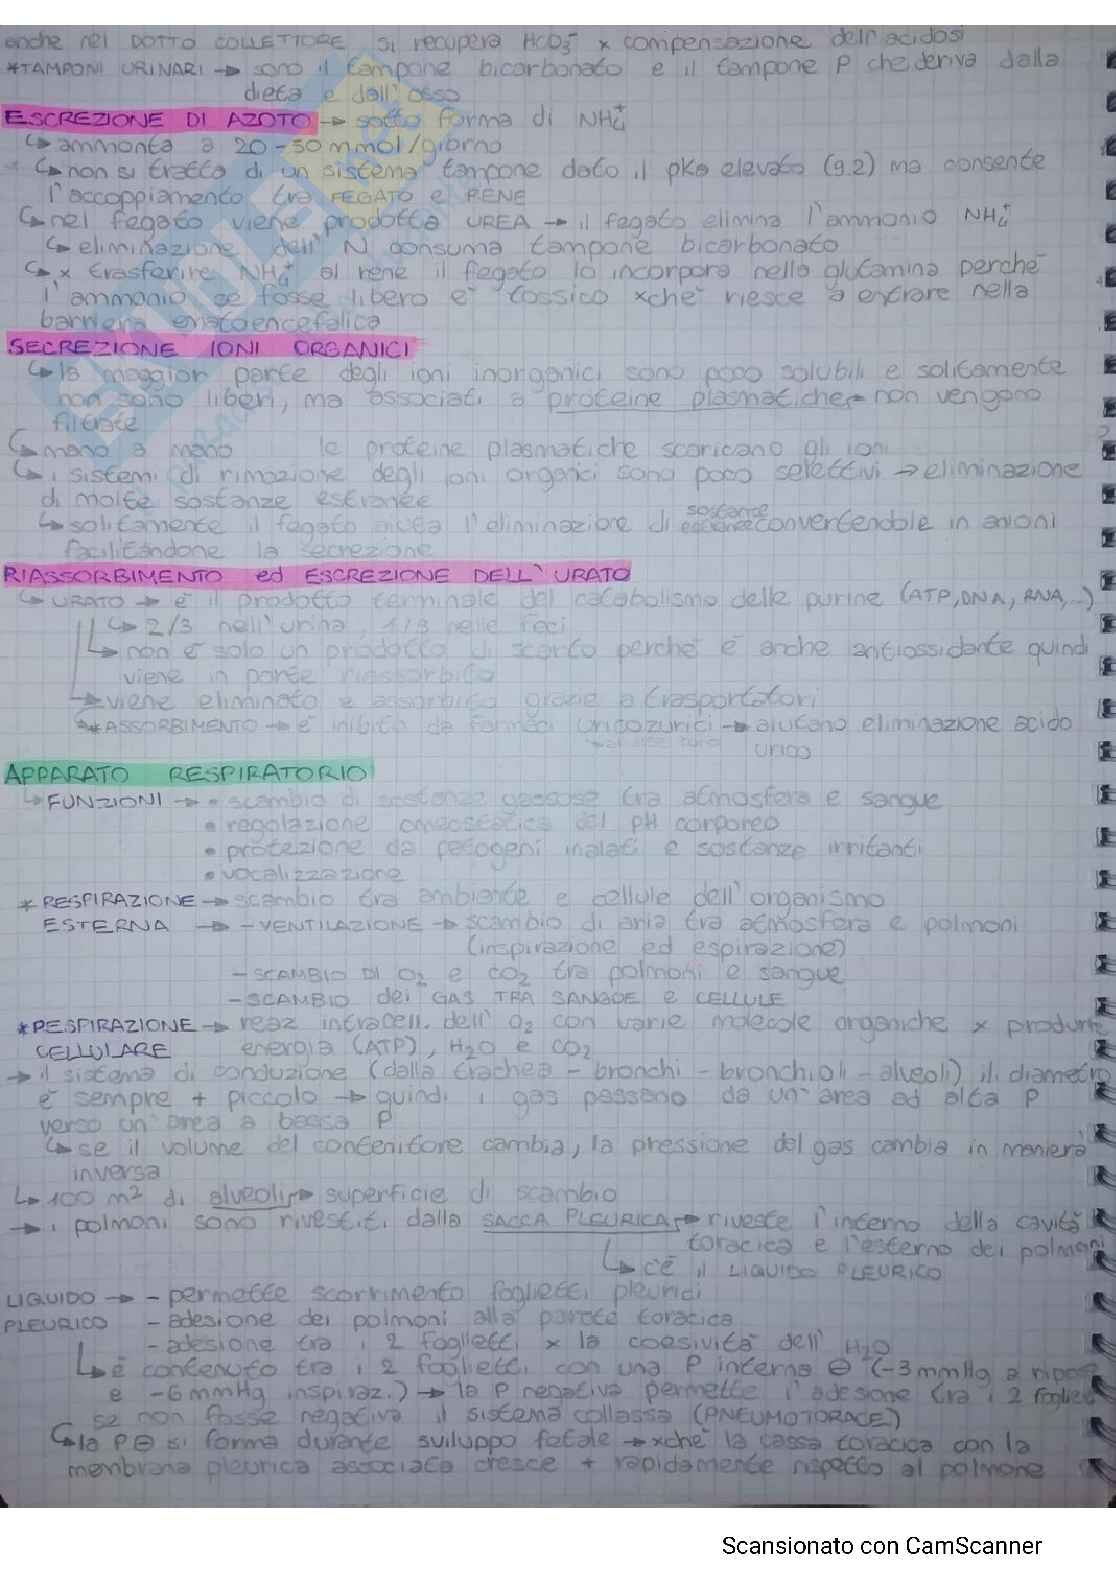 anche nel DOTTO COLLETTORE si recupera HCO3- x compensazione dell'acidosi
*TAMPONI URINARI → sono il tampone bicarbonato e il tampone P che deriva dalla
dieta e dall'osso
ESCREZIONE DI AZOTO → sotto forma di NH4+
↳ ammonta a 20-50 mmol/giorno
↳ non si tratta di un sistema tampone dato il pKa elevato (9.2) ma consente
l'accoppiamento tra FEGATO e RENE
↳ nel fegato viene prodotta UREA → il fegato elimina l'ammonio NH4+
↳ eliminazione dell'N consuma tampone bicarbonato
↳ x trasferire NH4+ al rene il fegato lo incorpora nella glutamina perché
l'ammonio se fosse libero è tossico xché riesce a entrare nella
barriera ematoencefalica
SECREZIONE IONI ORGANICI
↳ la maggior parte degli ioni inorganici sono poco solubili e solitamente
non sono liberi, ma associati a proteine plasmatiche → non vengono
filtrate
↳ mano a mano le proteine plasmatiche scaricano gli ioni
↳ i sistemi di rimozione degli ioni organici sono poco selettivi → eliminazione
di molte sostanze estranee
↳ solitamente il fegato aiuta l'eliminazione di sostanze estranee convertendole in anioni
facilitandone la secrezione
RIASSORBIMENTO ed ESCREZIONE DELL'URATO
↳ URATO → è il prodotto terminale del catabolismo delle purine (ATP, DNA, RNA,...)
↳ 2/3 nell'urina, 1/3 nelle feci
↳ non è solo un prodotto di scarto perché è anche antiossidante quindi
viene in parte riassorbito
→ viene eliminato e assorbito grazie a trasportatori
** ASSORBIMENTO → è inibito da farmaci uricozurici → aiutano eliminazione acido
urico
APPARATO RESPIRATORIO
↳ FUNZIONI → • scambio di sostanze gassose tra atmosfera e sangue
• regolazione omeostatica del pH corporeo
• protezione da patogeni inalati e sostanze irritanti
• vocalizzazione
* RESPIRAZIONE → scambio tra ambiente e cellule dell'organismo
ESTERNA → - VENTILAZIONE → scambio di aria tra atmosfera e polmoni
(inspirazione ed espirazione)
- SCAMBIO DI O2 e CO2 tra polmoni e sangue
- SCAMBIO dei GAS TRA SANGUE e CELLULE
* RESPIRAZIONE → reaz intracell. dell'O2 con varie molecole organiche x produrre
CELLULARE energia (ATP), H2O e CO2
→ il sistema di conduzione (dalla trachea - bronchi - bronchioli - alveoli) il diametro
è sempre + piccolo → quindi i gas passano da un'area ad alta P
verso un'area a bassa P
↳ se il volume del contenitore cambia, la pressione del gas cambia in maniera
inversa
↳ 100 m² di alveoli → superficie di scambio
→ i polmoni sono rivestiti dalla SACCA PLEURICA → riveste l'interno della cavità
toracica e l'esterno dei polmoni
↳ c'è il LIQUIDO PLEURICO
LIQUIDO → - permette scorrimento foglietti pleurici
PLEURICO - adesione dei polmoni alla parete toracica
- adesione tra i 2 foglietti x la coesività dell'H2O
↳ è contenuto tra i 2 foglietti con una P interna ⊖ (-3 mmHg a riposo
e -6 mmHg inspiraz.) → la P negativa permette l'adesione tra i 2 foglietti
se non fosse negativa il sistema collassa (PNEUMOTORACE)
↳ la P ⊖ si forma durante sviluppo fetale → xché la cassa toracica con la
membrana pleurica associata cresce + rapidamente rispetto al polmone
Scansionato con CamScanner